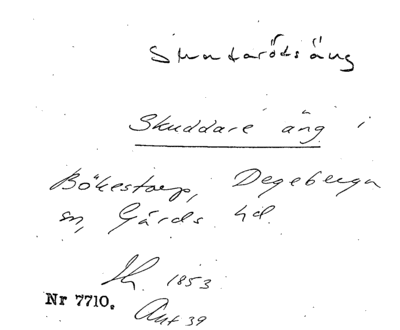 Skuntarödsäng
Skuddare äng i
Bökestorp, Degeberga
sn, Gärds hd.
1853
Nr 7710.
Ant 39